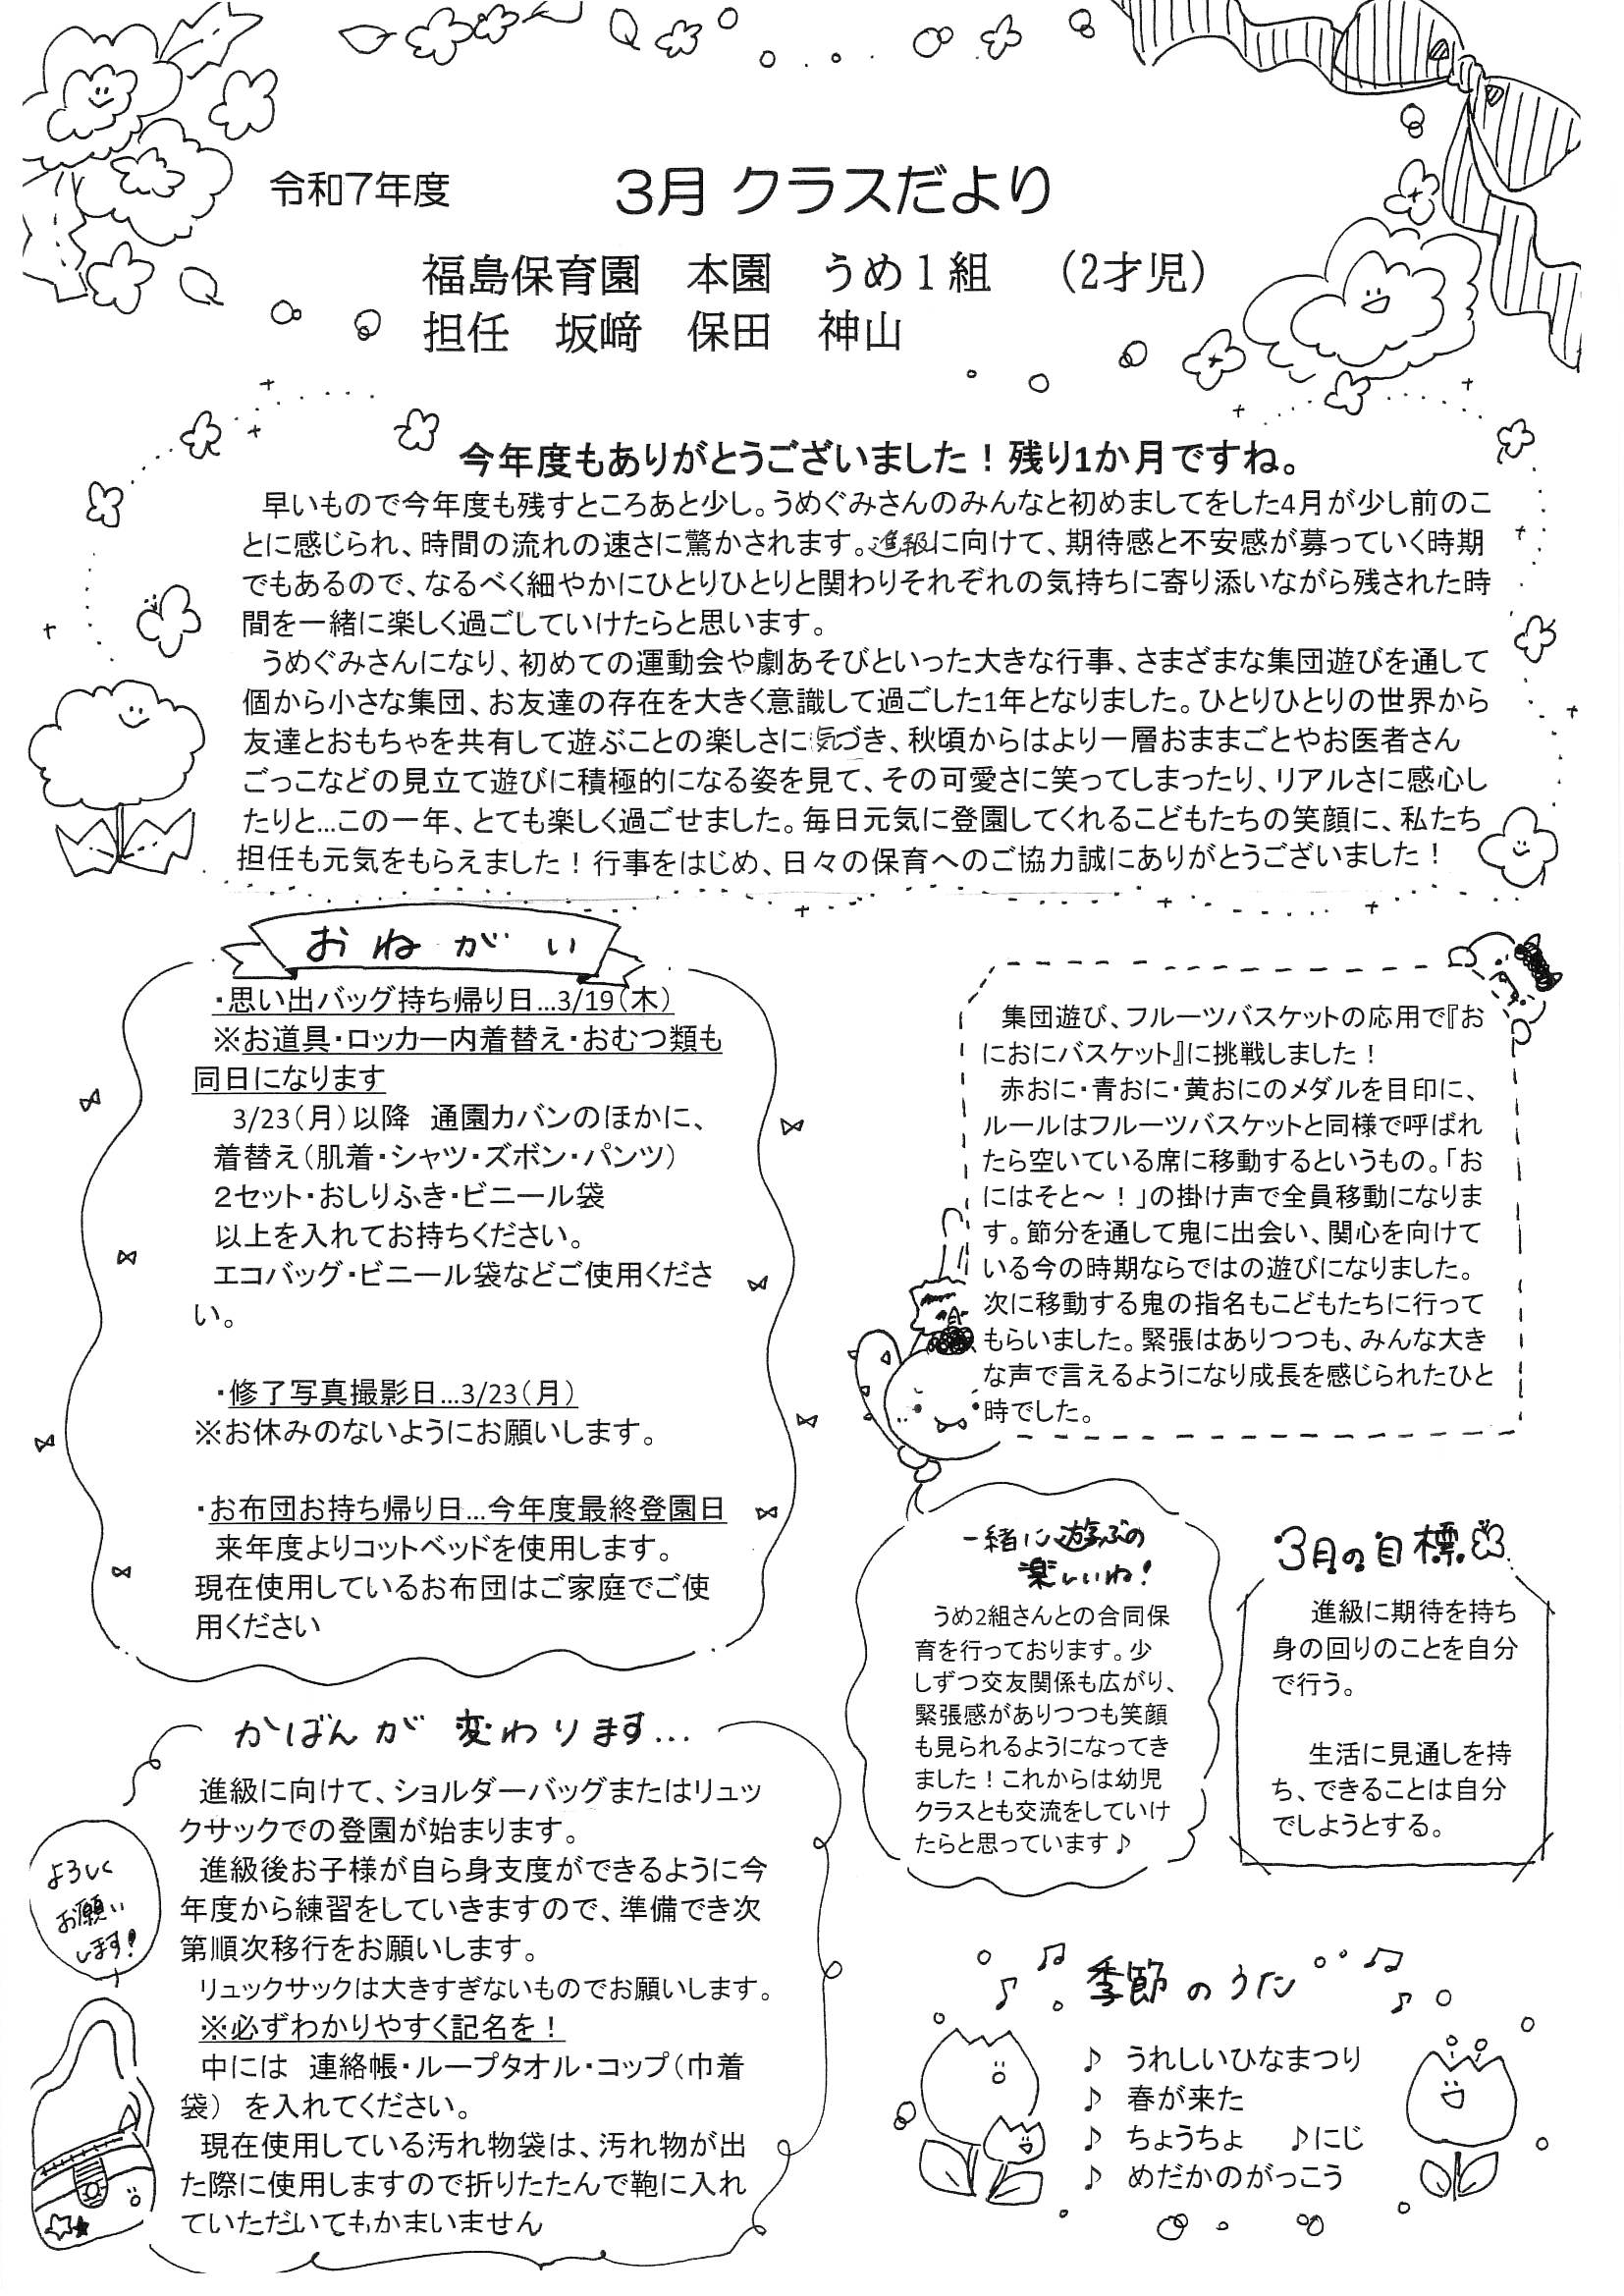 令和7年度　3月 クラスだより
福島保育園　本園　うめ１組　（2才児）
担任　坂﨑　保田　神山
今年度もありがとうございました！残り1か月ですね。
早いもので今年度も残すところあと少し。うめぐみさんのみんなと初めましてをした4月が少し前のこ
とに感じられ、時間の流れの速さに驚かされます。進級に向けて、期待感と不安感が募っていく時期
でもあるので、なるべく細やかにひとりひとりと関わりそれぞれの気持ちに寄り添いながら残された時
間を一緒に楽しく過ごしていけたらと思います。
うめぐみさんになり、初めての運動会や劇あそびといった大きな行事、さまざまな集団遊びを通して
個から小さな集団、お友達の存在を大きく意識して過ごした1年となりました。ひとりひとりの世界から
友達とおもちゃを共有して遊ぶことの楽しさに気づき、秋頃からはより一層おままごとやお医者さん
ごっこなどの見立て遊びに積極的になる姿を見て、その可愛さに笑ってしまったり、リアルさに感心し
たりと…この一年、とても楽しく過ごせました。毎日元気に登園してくれるこどもたちの笑顔に、私たち
担任も元気をもらえました！行事をはじめ、日々の保育へのご協力誠にありがとうございました！
おねがい
・思い出バッグ持ち帰り日…3/19（木）
※お道具・ロッカー内着替え・おむつ類も
同日になります
3/23（月）以降　通園カバンのほかに、
着替え（肌着・シャツ・ズボン・パンツ）
２セット・おしりふき・ビニール袋
以上を入れてお持ちください。
エコバッグ・ビニール袋などご使用くださ
い。
・修了写真撮影日…3/23（月）
※お休みのないようにお願いします。
・お布団お持ち帰り日…今年度最終登園日
来年度よりコットベッドを使用します。
現在使用しているお布団はご家庭でご使
用ください
集団遊び、フルーツバスケットの応用で『お
におにバスケット』に挑戦しました！
赤おに・青おに・黄おにのメダルを目印に、
ルールはフルーツバスケットと同様で呼ばれ
たら空いている席に移動するというもの。「お
にはそと～！」の掛け声で全員移動になりま
す。節分を通して鬼に出会い、関心を向けて
いる今の時期ならではの遊びになりました。
次に移動する鬼の指名もこどもたちに行って
もらいました。緊張はありつつも、みんな大き
な声で言えるようになり成長を感じられたひと
時でした。
一緒に遊ぶの
楽しいね！
うめ2組さんとの合同保
育を行っております。少
しずつ交友関係も広がり、
緊張感がありつつも笑顔
も見られるようになってき
ました！これからは幼児
クラスとも交流をしていけ
たらと思っています♪
3月の目標
進級に期待を持ち
身の回りのことを自分
で行う。
生活に見通しを持
ち、できることは自分
でしようとする。
かばんが変わります…
進級に向けて、ショルダーバッグまたはリュッ
クサックでの登園が始まります。
進級後お子様が自ら身支度ができるように今
年度から練習をしていきますので、準備でき次
第順次移行をお願いします。
リュックサックは大きすぎないものでお願いします。
※必ずわかりやすく記名を！
中には　連絡帳・ループタオル・コップ（巾着
袋）　を入れてください。
現在使用している汚れ物袋は、汚れ物が出
た際に使用しますので折りたたんで鞄に入れ
ていただいてもかまいません
よろしく
お願い
します！
季節のうた
♪　うれしいひなまつり
♪　春が来た
♪　ちょうちょ　♪にじ
♪　めだかのがっこう